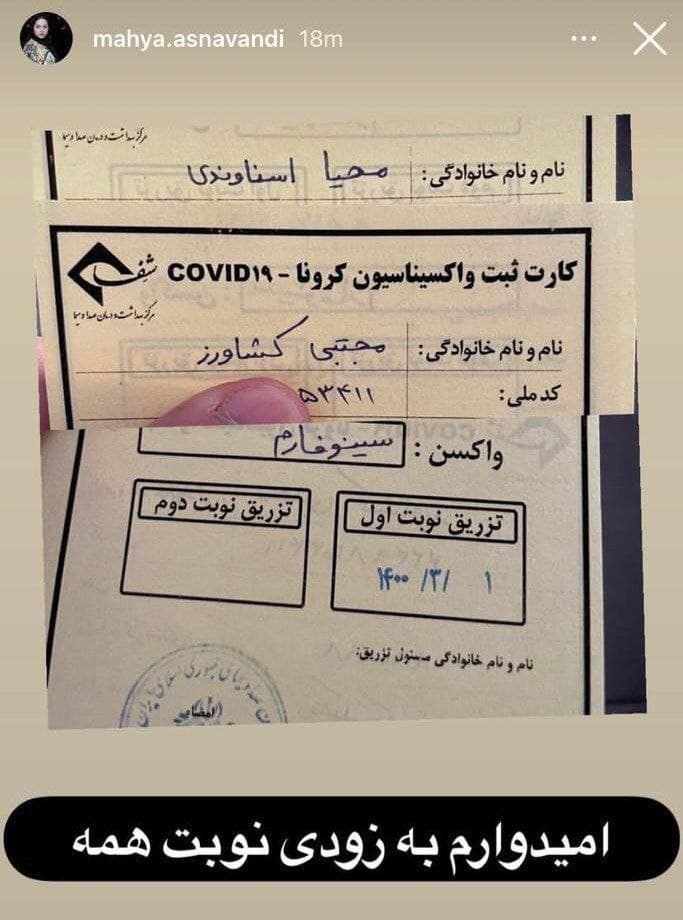 mahya.asnavandi 18m
مرکز بهداشت و درمان صدا و سیما
نام و نام خانوادگی: محیا اسناوندی
شفا
کارت ثبت واکسیناسیون کرونا - COVID۱۹
مرکز بهداشت و درمان صدا و سیما
نام و نام خانوادگی: مجتبی کشاورز
کد ملی: ۵۳۴۱۱
واکسن: سینوفارم
تزریق نوبت اول
تزریق نوبت دوم
۱۴۰۰/۳/۱
نام و نام خانوادگی مسئول تزریق:
امضاء
امیدوارم به زودی نوبت همه